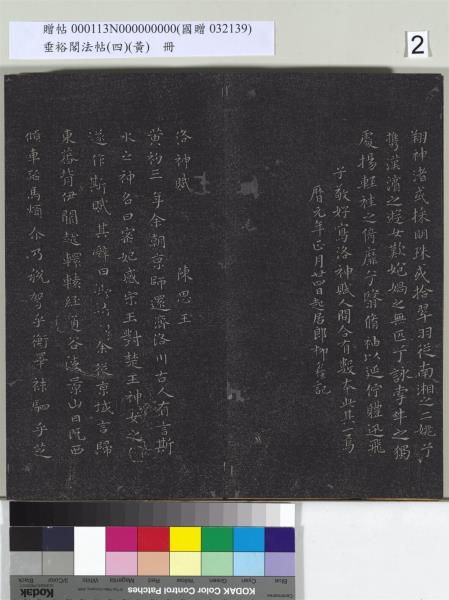 贈帖 000113N000000000(國贈 032139)
垂裕閣法帖(四)(黃) 冊
2
翔神渚或採明珠或拾翠羽從南湘之二姚兮
攜漢濱之游女歎匏媧之無匹兮詠牽牛之獨
處揚輕袿之倚靡兮翳脩袖以延佇體迅飛
子敬好寫洛神賦人間合有數本此其一焉
曆元年正月廿四日起居郎柳 記
洛神賦 陳思王
黃初三年余朝京師還濟洛川古人有言斯
水之神名曰宓妃感宋玉對楚王神女之
遂作斯賦其辭曰 余從京域言歸
東藩背伊闕越轘轅經通谷陵景山日既西
傾車殆馬煩尒乃稅駕乎蘅皋秣駟乎芝
Kodak
KODAK Color Control Patches
Blue
Cyan
Green
Yellow
Red
Magenta
White
3/Color
Black